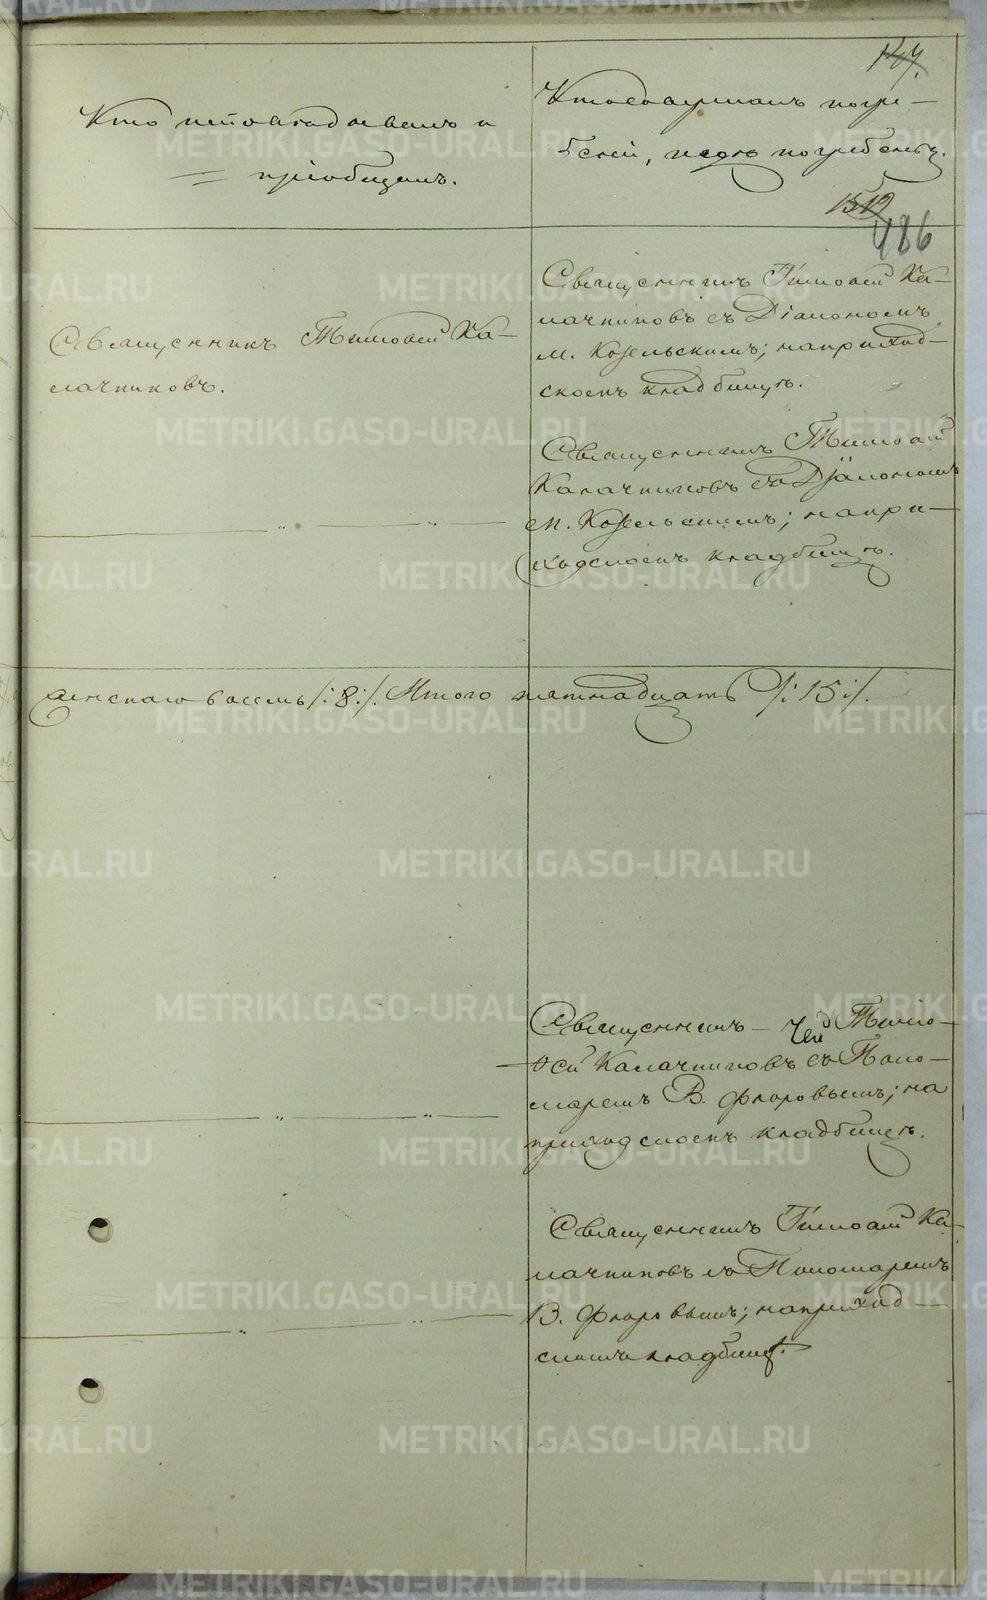 147.
Кто исповѣдовалъ и
пріобщалъ.
Кто совершалъ погре-
беніе, и гдѣ погребены.
1512
486
Священникъ Тимофей Ка-
лачниковъ.
Священникъ Тимофей Ка-
лачниковъ съ Діакономъ
М. Козельскимъ; на приход-
скомъ кладбищѣ.
Священникъ Тимофей
Калачниковъ съ Діакономъ
М. Козельскимъ; на при-
ходскомъ кладбищѣ.
женскаго восемь /:8:/. Итого пятнадцать /:15:/.
Священникъ Тимо-
фей Калачниковъ съ Поно-
маремъ В. Флоровымъ; на
приходскомъ кладбищѣ.
Священникъ Тимофей Ка-
лачниковъ съ Пономаремъ
В. Флоровымъ; на приход-
скомъ кладбищѣ.
METRIKI.GASO-URAL.RU